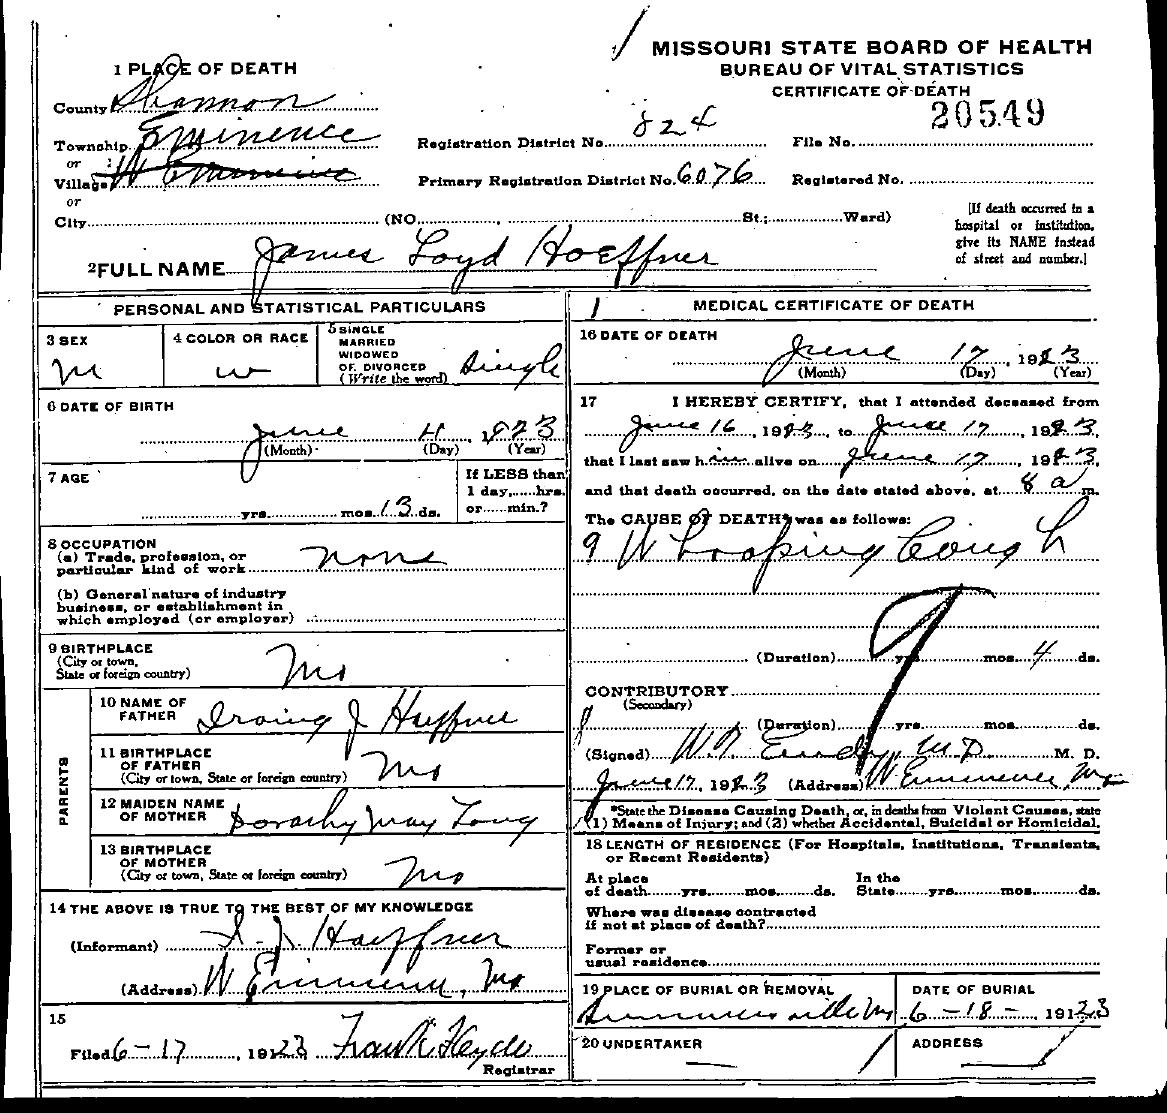 MISSOURI STATE BOARD OF HEALTH
BUREAU OF VITAL STATISTICS
CERTIFICATE OF DEATH
1 PLACE OF DEATH
County Shannon
20549
Township Eminence
Registration District No. 824
File No.
or
Village W Eminence
Primary Registration District No. 6076
Registered No.
or
City (NO. St.; Ward)
[If death occurred in a hospital or institution, give its NAME instead of street and number.]
2 FULL NAME James Loyd Hoeffner
PERSONAL AND STATISTICAL PARTICULARS
3 SEX
M
4 COLOR OR RACE
W
5 SINGLE
MARRIED
WIDOWED
OR DIVORCED
(Write the word) Single
6 DATE OF BIRTH
June 4, 1923
(Month) (Day) (Year)
7 AGE
yrs. mos. 13 ds.
If LESS than
1 day,.....hrs.
or......min.?
8 OCCUPATION
(a) Trade, profession, or
particular kind of work none
(b) General nature of industry
business, or establishment in
which employed (or employer)
9 BIRTHPLACE
(City or town,
State or foreign country) Mo
PARENTS
10 NAME OF
FATHER Irving J Hoeffner
11 BIRTHPLACE
OF FATHER
(City or town, State or foreign country) Mo
12 MAIDEN NAME
OF MOTHER Dorathy May Long
13 BIRTHPLACE
OF MOTHER
(City or town, State or foreign country) Mo
14 THE ABOVE IS TRUE TO THE BEST OF MY KNOWLEDGE
(Informant) I. J. Hoeffner
(Address) W Eminence, Mo
15
Filed 6-17, 1923 Frank Hyde
Registrar
1 MEDICAL CERTIFICATE OF DEATH
16 DATE OF DEATH
June 17, 1923
(Month) (Day) (Year)
17 I HEREBY CERTIFY, that I attended deceased from
June 16, 1923, to June 17, 1923,
that I last saw him alive on June 17, 1923,
and that death occurred, on the date stated above, at 8 a m.
The CAUSE OF DEATH* was as follows:
9 Whooping Cough
9
(Duration) yrs. mos. 4 ds.
CONTRIBUTORY
(Secondary)
(Duration) yrs. mos. ds.
(Signed) W.T. Eudy, M D M. D.
June 17, 1923 (Address) W Eminence, Mo
*State the Disease Causing Death, or, in deaths from Violent Causes, state
(1) Means of Injury; and (2) whether Accidental, Suicidal or Homicidal.
18 LENGTH OF RESIDENCE (For Hospitals, Institutions, Transients,
or Recent Residents)
At place
of death yrs. mos. ds.
In the
State yrs. mos. ds.
Where was disease contracted
if not at place of death?
Former or
usual residence
19 PLACE OF BURIAL OR REMOVAL
Summersville Mo
DATE OF BURIAL
6-18-, 1923
20 UNDERTAKER
ADDRESS